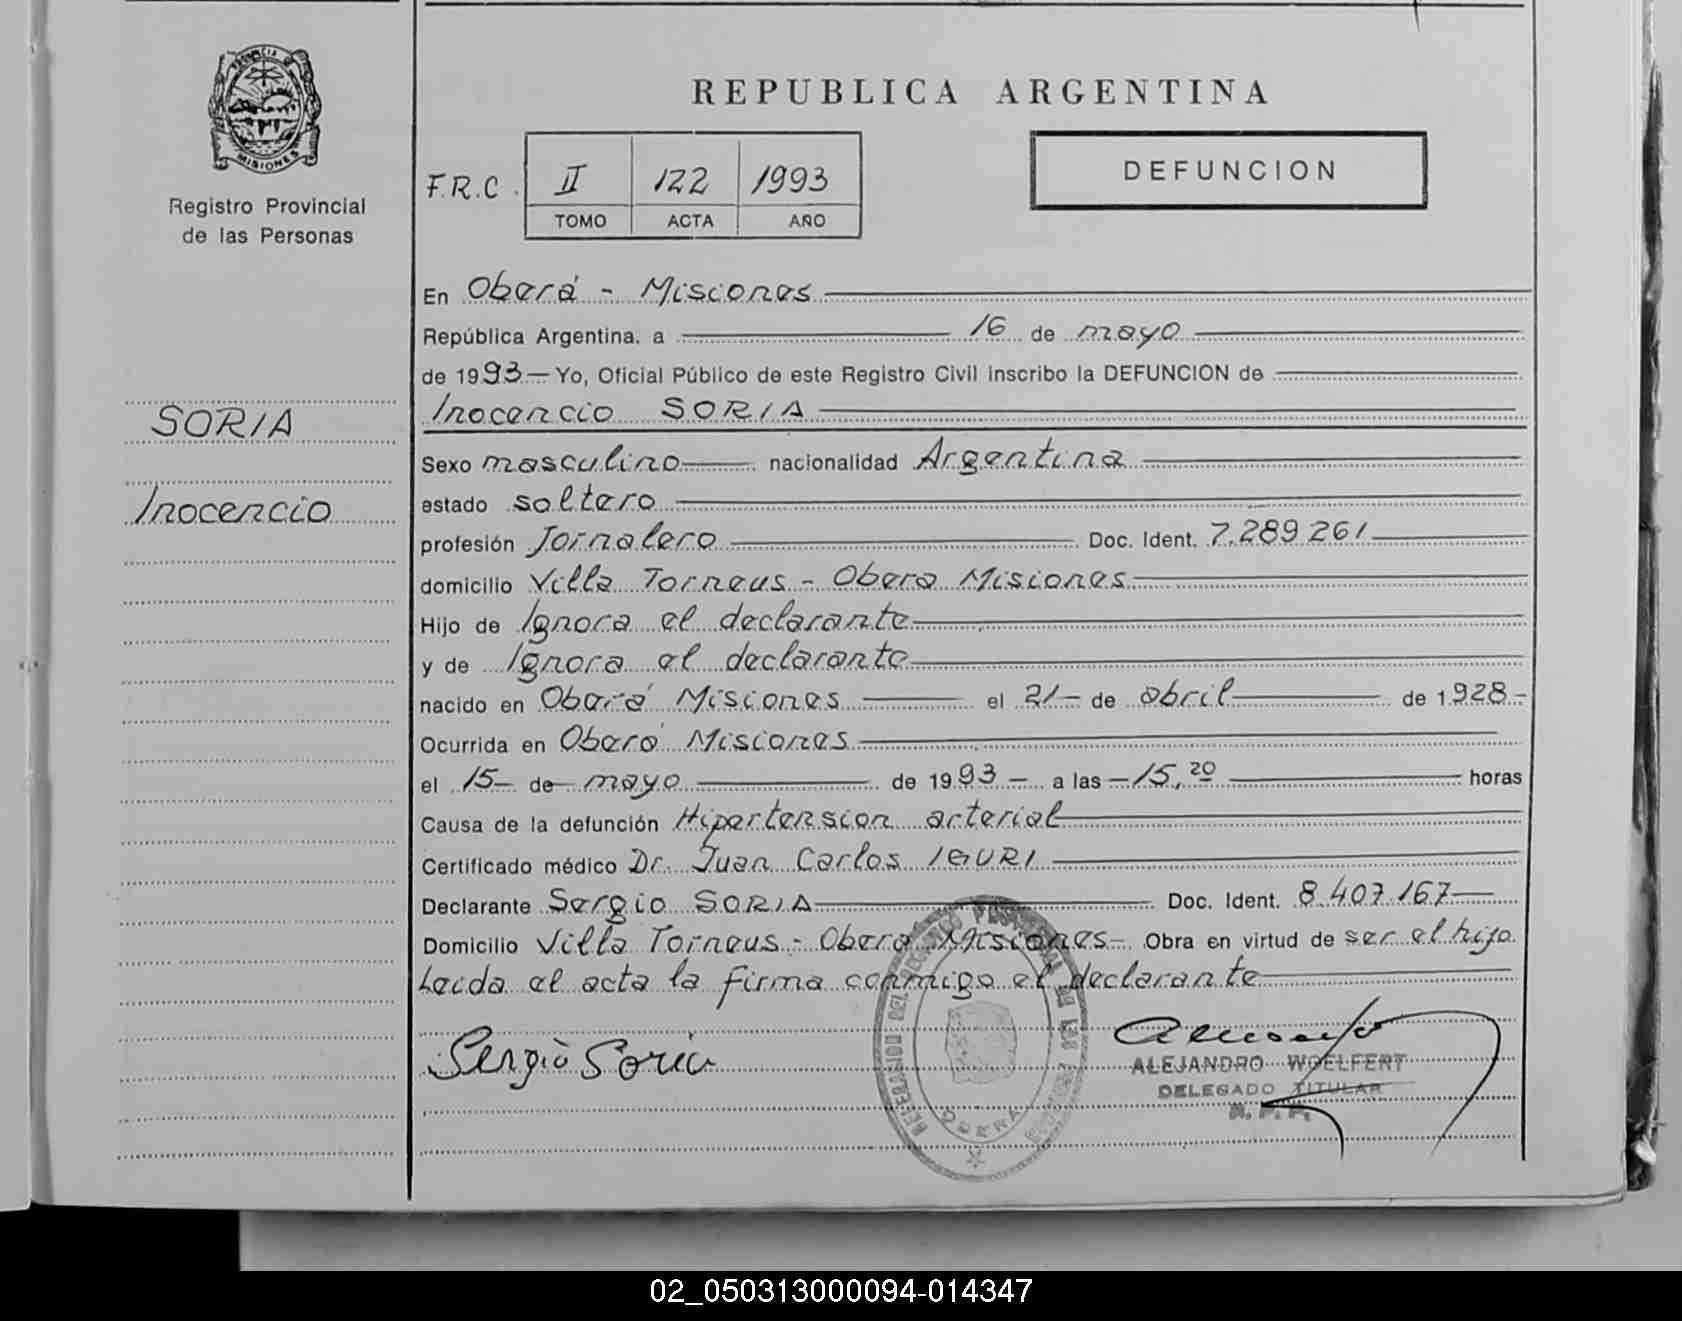 PROVINCIA DE
MISIONES
Registro Provincial
de las Personas
SORIA
Inocencio
REPUBLICA ARGENTINA
F.R.C. II 122 1993
TOMO ACTA AÑO
DEFUNCION
En Oberá - Misiones
República Argentina, a 16 de mayo
de 1993 — Yo, Oficial Público de este Registro Civil inscribo la DEFUNCION de
Inocencio SORIA
Sexo masculino nacionalidad Argentina
estado soltero
profesión Jornalero Doc. Ident. 7.289.261
domicilio Villa Torneus - Obera Misiones
Hijo de Ignora el declarante
y de Ignora el declarante
nacido en Oberá Misiones el 21 - de abril de 1928 -
Ocurrida en Oberá Misiones
el 15 - de mayo de 1993 - a las - 15,20 horas
Causa de la defunción Hipertension arterial
Certificado médico Dr. Juan Carlos
Declarante Sergio SORIA Doc. Ident. 8.407.167
Domicilio Villa Torneus - Obera Misiones - Obra en virtud de ser el hijo
Leida el acta la firma conmigo el declarante
Sergio Soria
ALEJANDRO WOELFERT
DELEGADO TITULAR
R. P. P.
DELEGACION DEL REGISTRO PROVINCIAL DE LAS PERSONAS
OBERA
02_050313000094-014347